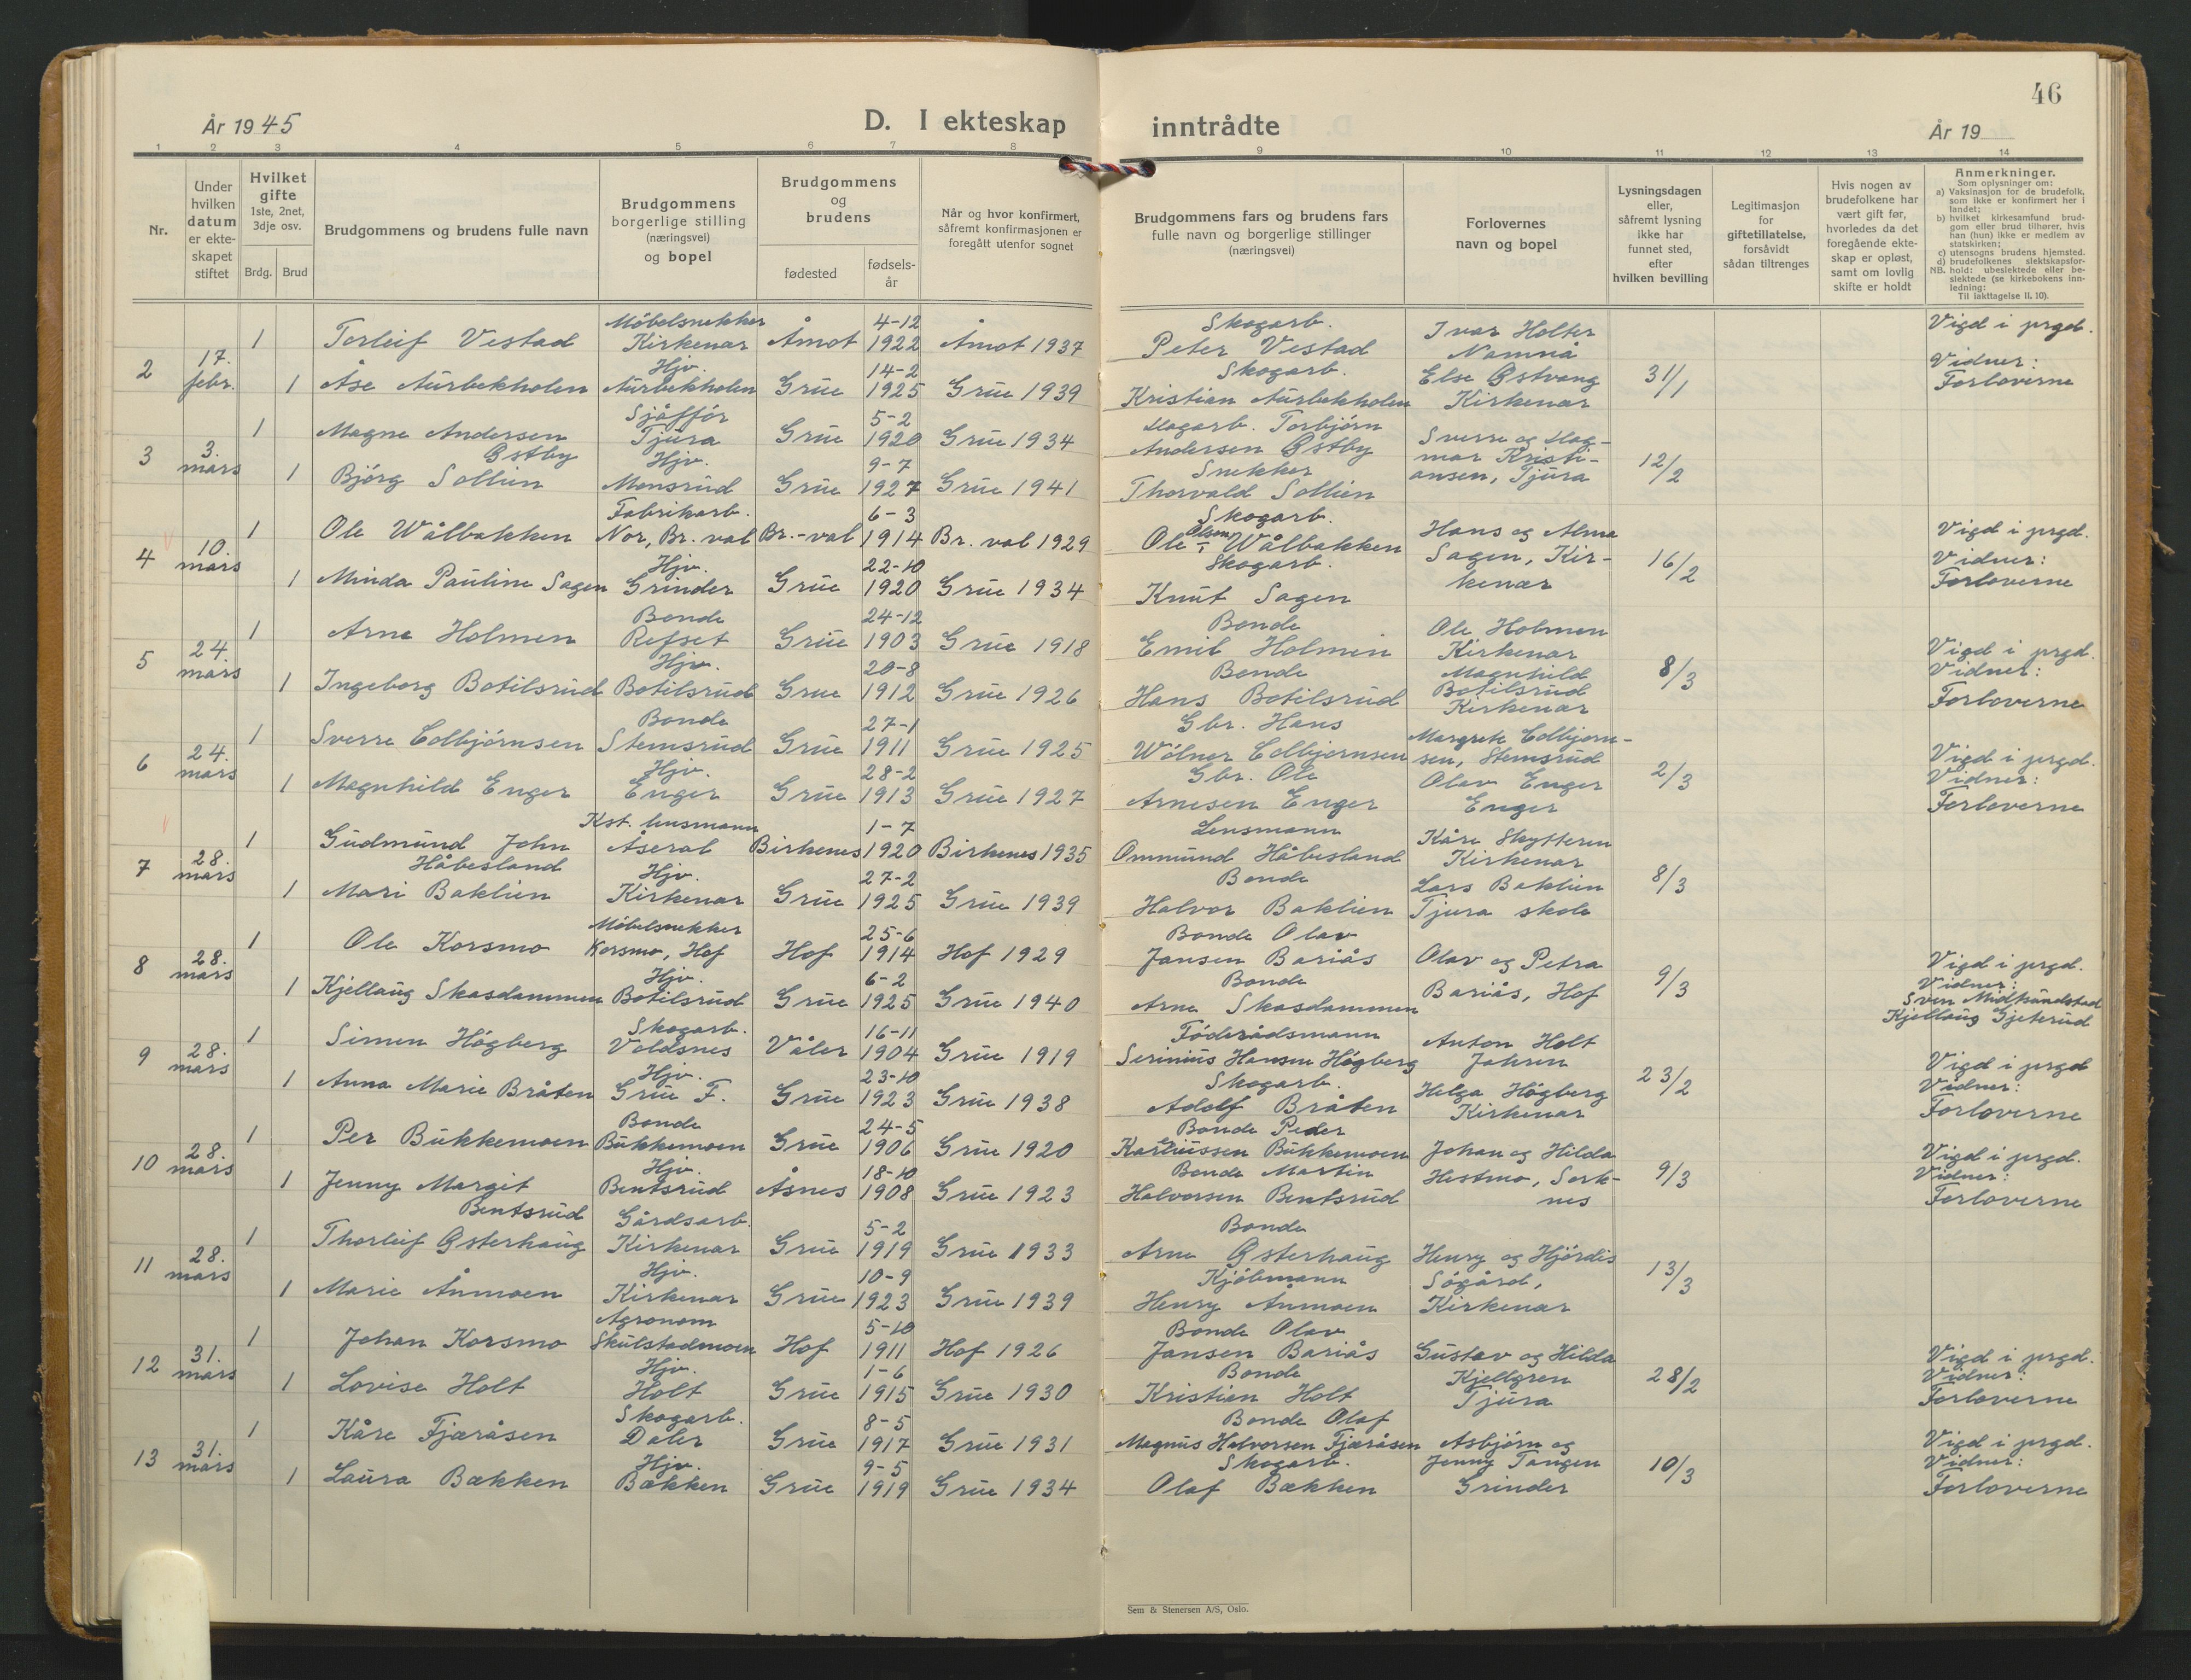 46
År 1945
D. I ekteskap inntrådte
År 19
1 2 3 4 5 6 7 8 9 10 11 12 13 14
Nr.
Under hvilken datum er ekteskapet stiftet
Hvilket gifte 1ste, 2net, 3dje osv.
Brdg. Brud
Brudgommens og brudens fulle navn
Brudgommens borgerlige stilling (næringsvei) og bopel
Brudgommens og brudens
fødested
fødselsår
Når og hvor konfirmert, såfremt konfirmasjonen er foregått utenfor sognet
Brudgommens fars og brudens fars fulle navn og borgerlige stillinger (næringsvei)
Forlovernes navn og bopel
Lysningsdagen eller, såfremt lysning ikke har funnet sted, efter hvilken bevilling
Legitimasjon for giftetillatelse, forsåvidt sådan tiltrenges
Hvis nogen av brudefolkene har vært gift før, hvorledes da det foregående ekteskap er opløst, samt om lovlig skifte er holdt
Anmerkninger.
Som oplysninger om:
a) Vaksinasjon for de brudefolk, som ikke er konfirmert her i landet;
b) hvilket kirkesamfund brudgom eller brud tilhører, hvis han (hun) ikke er medlem av statskirken;
c) utensogns brudens hjemsted.
d) brudefolkenes slektskapsforhold: ubeslektede eller beslektede (se kirkebokens Innledning:
NB.
Til iakttagelse II, 10).
2 17. febr. 1 Torleif Vestad Møbelsnekker Kirkenær Åmot 4-12 1922 Åmot 1937 Skogarb. Peter Vestad Ivar Holter Namnå 31/1 Vigd i prgd.
1 Åse Aurbekholen Hjv. Aurbekholen Grue 14-2 1925 Grue 1939 Skogarb. Kristian Aurbekholen Else Østvang Kirkenær Vidner: Forloverne
3 3. mars 1 Magne Andersen Østby Sjåffør Tjura Grue 5-2 1920 Grue 1934 Skogarb. Torbjørn Andersen Østby Sverre og Dagmar Kristiansen, Tjura 12/2
1 Bjørg Sollien Hjv. Monsrud Grue 9-7 1927 Grue 1941 Snekker Thorvald Sollien
4 10. mars 1 Ole Wålbakken Fabrikarb. Nor, Br.val Br.-val 6-3 1914 Br.val 1929 Skogarb. Ole Olsen Wålbakken Hans og Alma Sagen, Kirkenær 16/2 Vigd i prgd.
1 Minda Pauline Sagen Hjv. Grinder Grue 22-10 1920 Grue 1934 Skogarb. Knut Sagen Vidner: Forloverne
5 24. mars 1 Arne Holmen Bonde Refset Grue 24-12 1903 Grue 1918 Bonde Emil Holmen Ole Holmen Kirkenær 8/3 Vigd i prgd.
1 Ingeborg Botilsrud Hjv. Botilsrud Grue 20-8 1912 Grue 1926 Bonde Hans Botilsrud Magnhild Botilsrud Kirkenær Vidner: Forloverne
6 24. mars 1 Sverre Colbjørnsen Bonde Stemsrud Grue 27-1 1911 Grue 1925 Gbr. Hans Wölner Colbjørnsen Margrete Colbjørnsen, Stemsrud 2/3 Vigd i prgd.
1 Magnhild Enger Hjv. Enger Grue 28-2 1913 Grue 1927 Gbr. Ole Arnesen Enger Olav Enger Enger Vidner: Forloverne
7 28. mars 1 Gudmund John Håbesland Kst. lensmann Åseral Birkenes 1-7 1920 Birkenes 1935 Lensmann Ommund Håbesland Kåre Skytteren Kirkenær 8/3
1 Mari Baklien Hjv. Kirkenær Grue 27-2 1925 Grue 1939 Bonde Halvor Baklien Lars Baklien Tjura skole
8 28. mars 1 Ole Korsmo Møbelsnekker Korsmo, Hof Hof 25-6 1914 Hof 1929 Bonde Olav Jansen Bariås Olav og Petra Bariås, Hof 9/3 Vigd i prgd.
1 Kjellaug Skasdammen Hjv. Botilsrud Grue 6-2 1925 Grue 1940 Bonde Arne Skasdammen Vidner: Sven Midthundstad Kjellaug Gjeterud
9 28. mars 1 Simen Högberg Skogarb. Voldsnes Våler 16-11 1904 Grue 1919 Föderådsmann Serinius Hansen Högberg Anton Holt Johren 23/2 Vigd i prgd
1 Anna Marie Bråten Hjv. Grue F. Grue 23-10 1923 Grue 1938 Skogarb. Adolf Bråten Helga Högberg Kirkenær Vidner: Forloverne
10 28. mars 1 Per Bukkemoen Bonde Bukkemoen Grue 24-5 1906 Grue 1920 Bonde Peder Karliussen Bukkemoen Johan og Hilda Hestmo, Sorknes 9/3 Vigd i prgd.
1 Jenny Margit Bentsrud Hjv. Bentsrud Åsnes 18-10 1908 Grue 1923 Bonde Martin Halvorsen Bentsrud Vidner: Forloverne
11 28. mars 1 Thorleif Østerhaug Gårdsarb. Kirkenær Grue 5-2 1919 Grue 1933 Bonde Arne Østerhaug Henry og Hjördis Sögård, Kirkenær 13/3
1 Marie Åumoen Hjv. Kirkenær Grue 10-9 1923 Grue 1939 Kjöbmann Henry Åumoen
12 31. mars 1 Johan Korsmo Agronom Skulstadmoen Hof 5-10 1911 Hof 1926 Bonde Olav Jansen Bariås Gustav og Hilda Kjellgren Tjura 28/2 Vigd i prgd.
1 Lovise Holt Hjv. Holt Grue 1-6 1915 Grue 1930 Bonde Kristian Holt Vidner: Forloverne
13 31. mars 1 Kåre Fjæråsen Skogarb. Daler Grue 8-5 1917 Grue 1931 Bonde Olaf Magnus Halvorsen Fjæråsen Asbjørn og Jenny Tangen Grinder 10/3 Vigd i prgd.
1 Laura Bækken Hjv. Bækken Grue 9-5 1919 Grue 1934 Skogarb. Olaf Bækken Vidner: Forloverne
Sem & Stenersen A/S, Oslo.